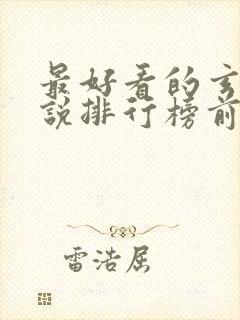 最好看的玄
說排行榜前
雷浩屈